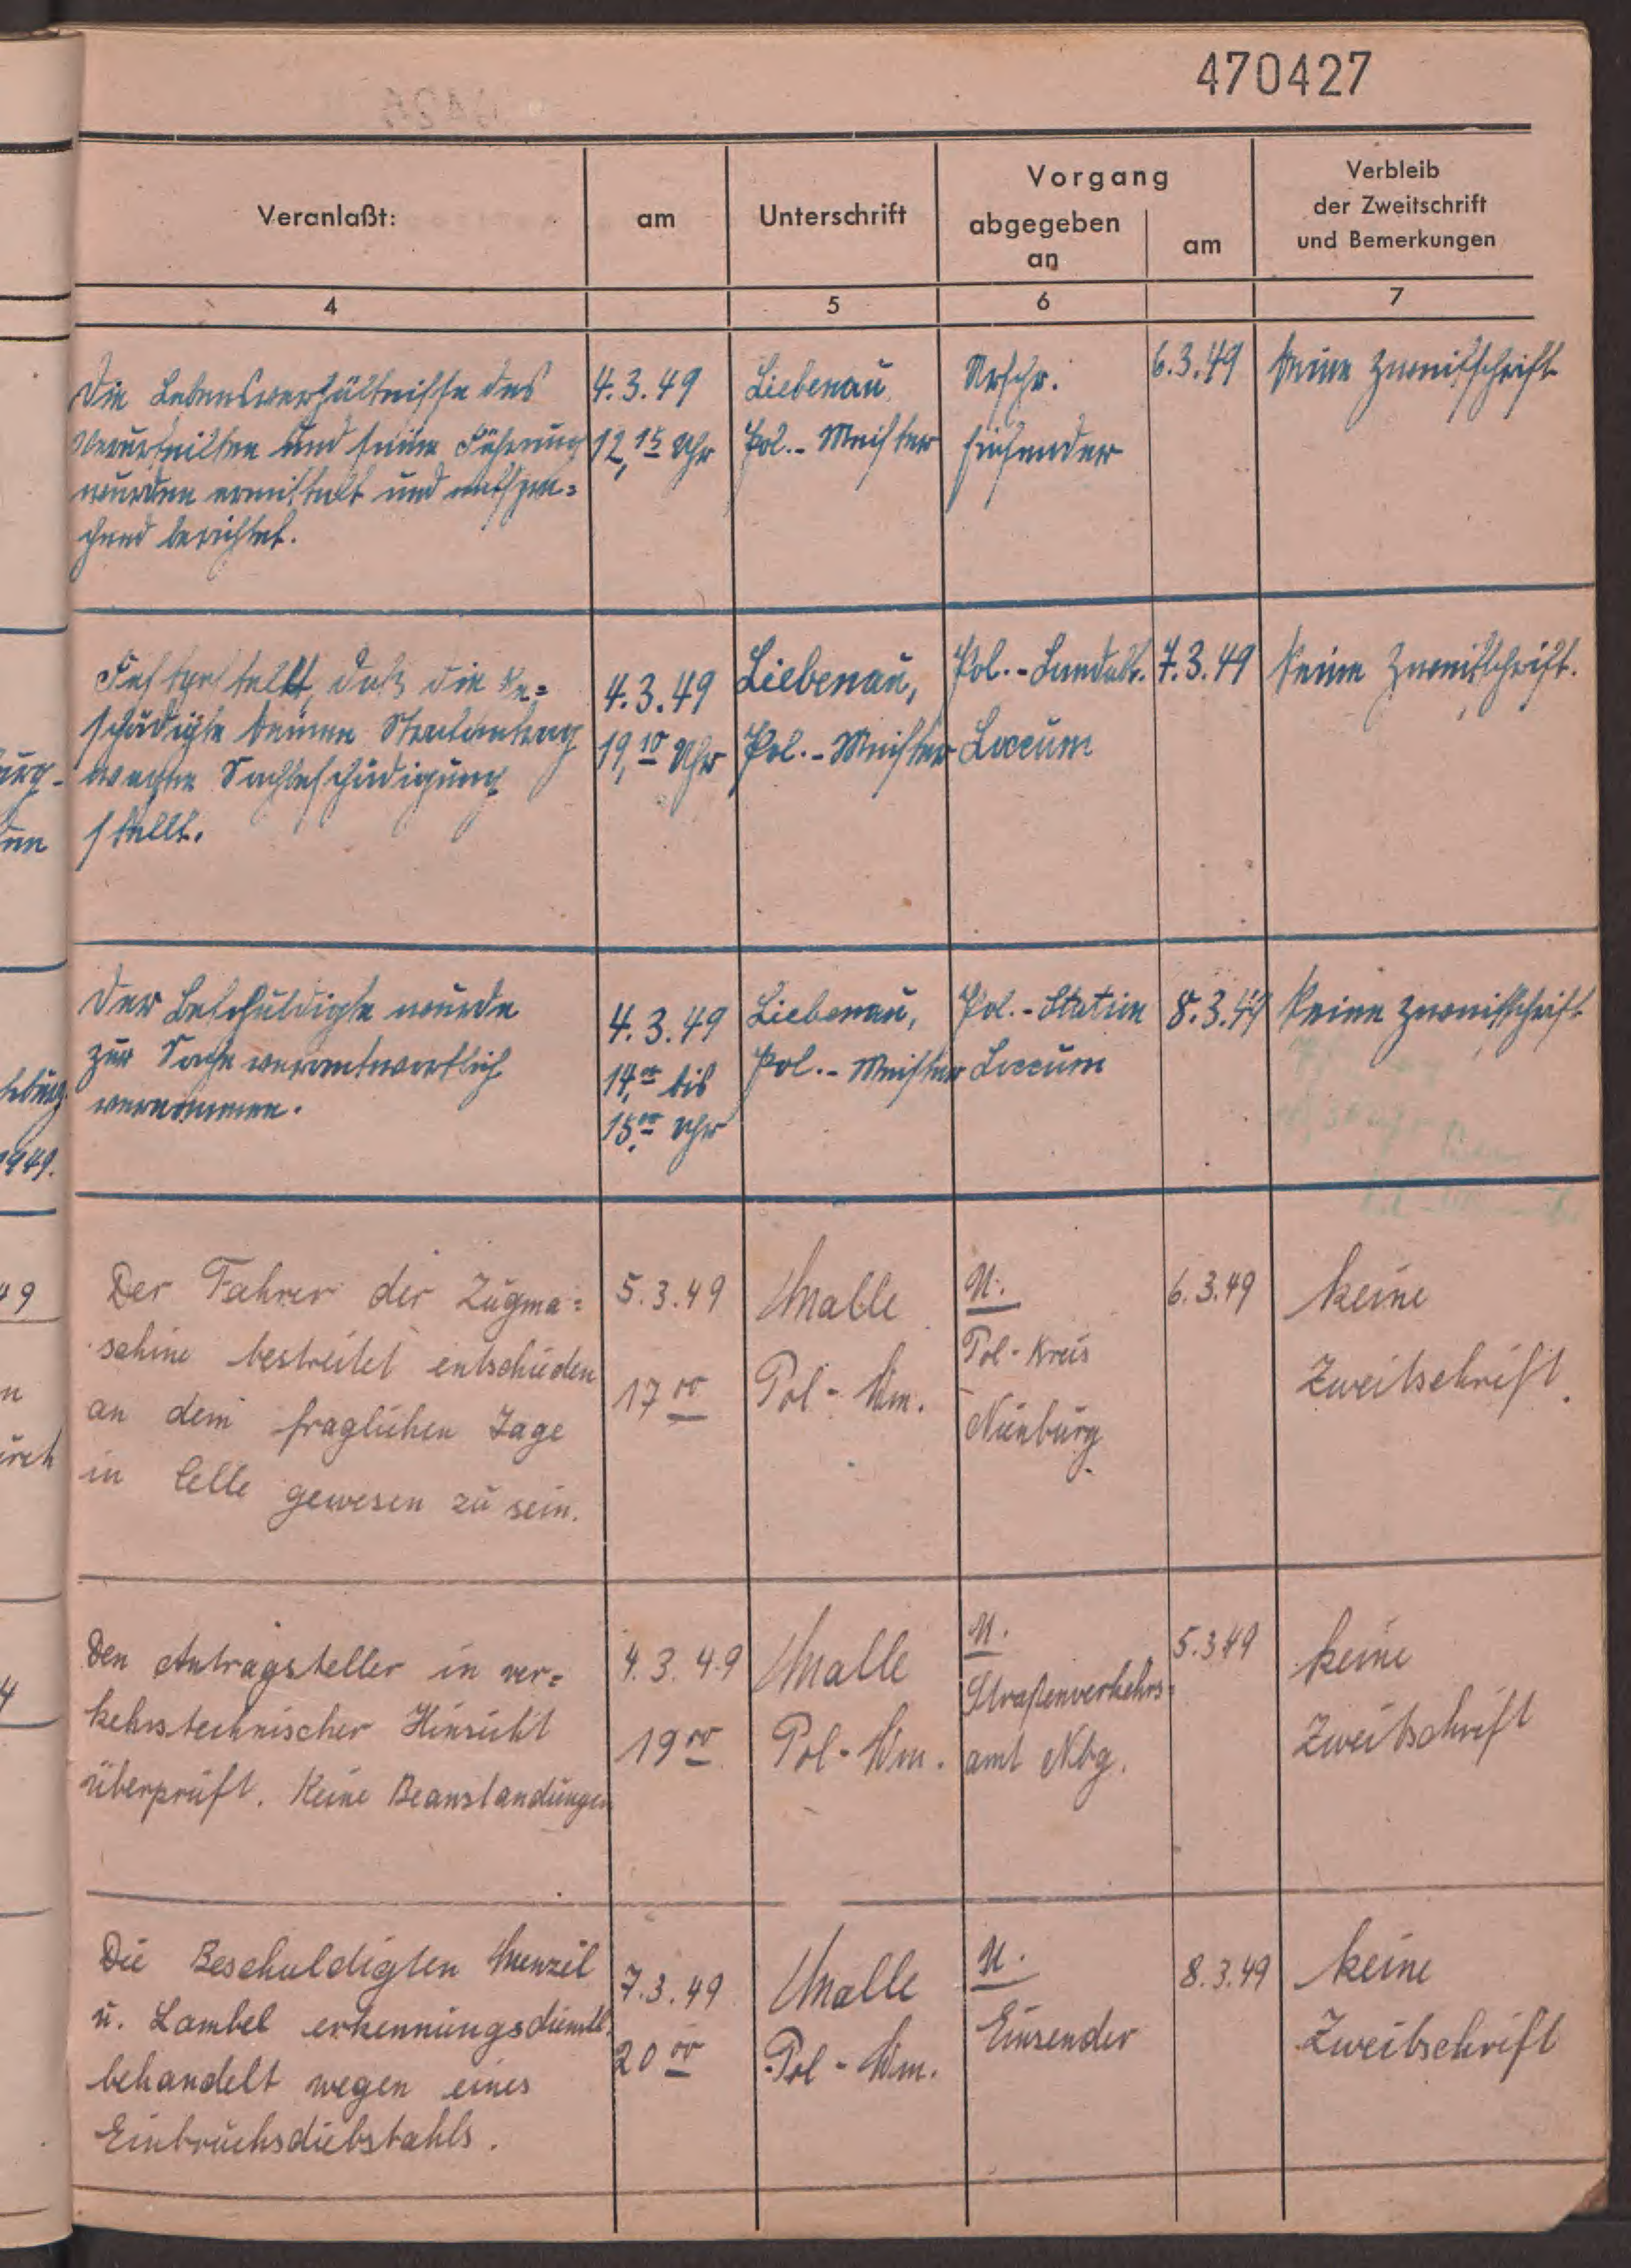 470427
Veranlaßt:
am
Unterschrift
Vorgang
abgegeben
an
am
Verbleib
der Zweitschrift
und Bemerkungen
4
5
6
7
Die Lebensverhältnisse des
Verurteilten und seine Führung
wurden ermittelt und entspre=
chend berichtet.
4.3.49
12,15 Uhr
Liebenau
Pol.-Meister
Urschr.
Einsender
6.3.49
keine Zweitschrift
Festgestellt, daß die Ge=
schädigte keinen Strafantrag
wegen Sachbeschädigung
stellt.
4.3.49
19,10 Uhr
Liebenau,
Pol.-Meister
Pol.-
Loccum
7.3.49
keine Zweitschrift.
Der Beschuldigte wurde
zur Sache verantwortlich
vernommen.
4.3.49
14,00 bis
15,00 Uhr
Liebenau,
Pol.-Meister
Pol.-Station
Loccum
8.3.49
keine Zweitschrift
Der Fahrer der Zugma=
schine bestreitet entschieden
an dem fraglichen Tage
in Celle gewesen zu sein.
5.3.49
17 00
Malle
Pol-Wm.
U.
Pol-Kreis
Nienburg
6.3.49
keine
Zweitschrift.
Den Antragsteller in ver=
kehrstechnischer Hinsicht
überprüft. Keine Beanstandungen
4.3.49
19 00
Malle
Pol-Wm.
U.
Straßenverkehrs=
amt Nbg.
5.3.49
keine
Zweitschrift
Die Beschuldigten Menzel
u. Lambel erkennungsdienstl.
behandelt wegen eines
Einbruchsdiebstahls.
7.3.49
20 00
Malle
Pol-Wm.
U.
Einsender
8.3.49
keine
Zweitschrift